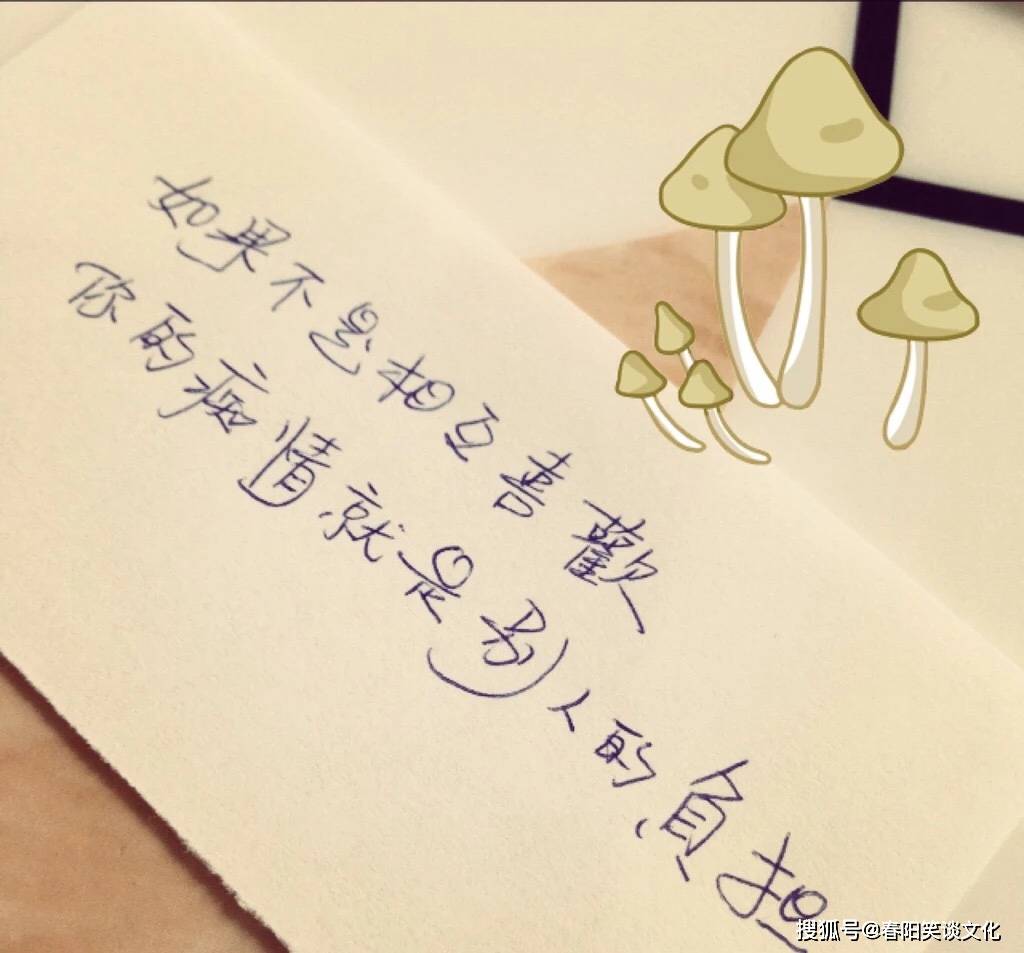 如果不是相互喜歡
你的痴情就是别人的負担
搜狐号@春阳笑谈文化